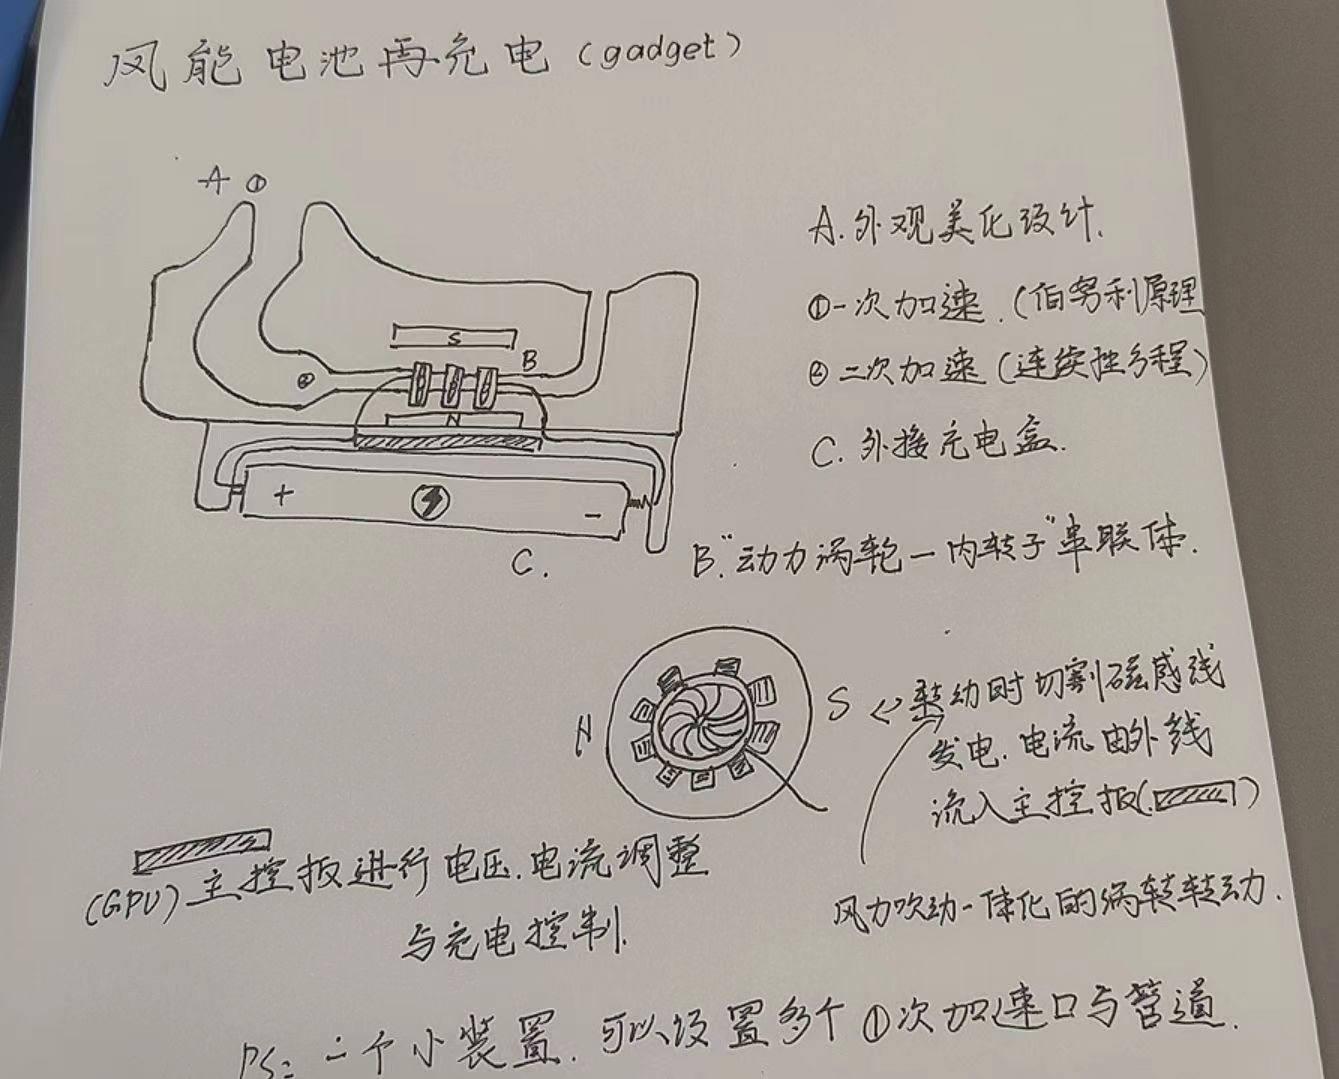 风能电池再充电（gadget）
A ①
A. 外观美化设计.
①一次加速.（伯努利原理
S
B
②
②二次加速（连续性方程）
N
C. 外接充电盒.
+ -
C.
B."动力涡轮一内转子"串联体.
N S <-> 转动时切割磁感线
发电.电流由外线
流入主控板( )
(GPU)主控扳进行电压.电流调整
与充电控制.
风力吹动一体化的涡转转动.
PS：一个小装置.可以设置多个①次加速口与管道.